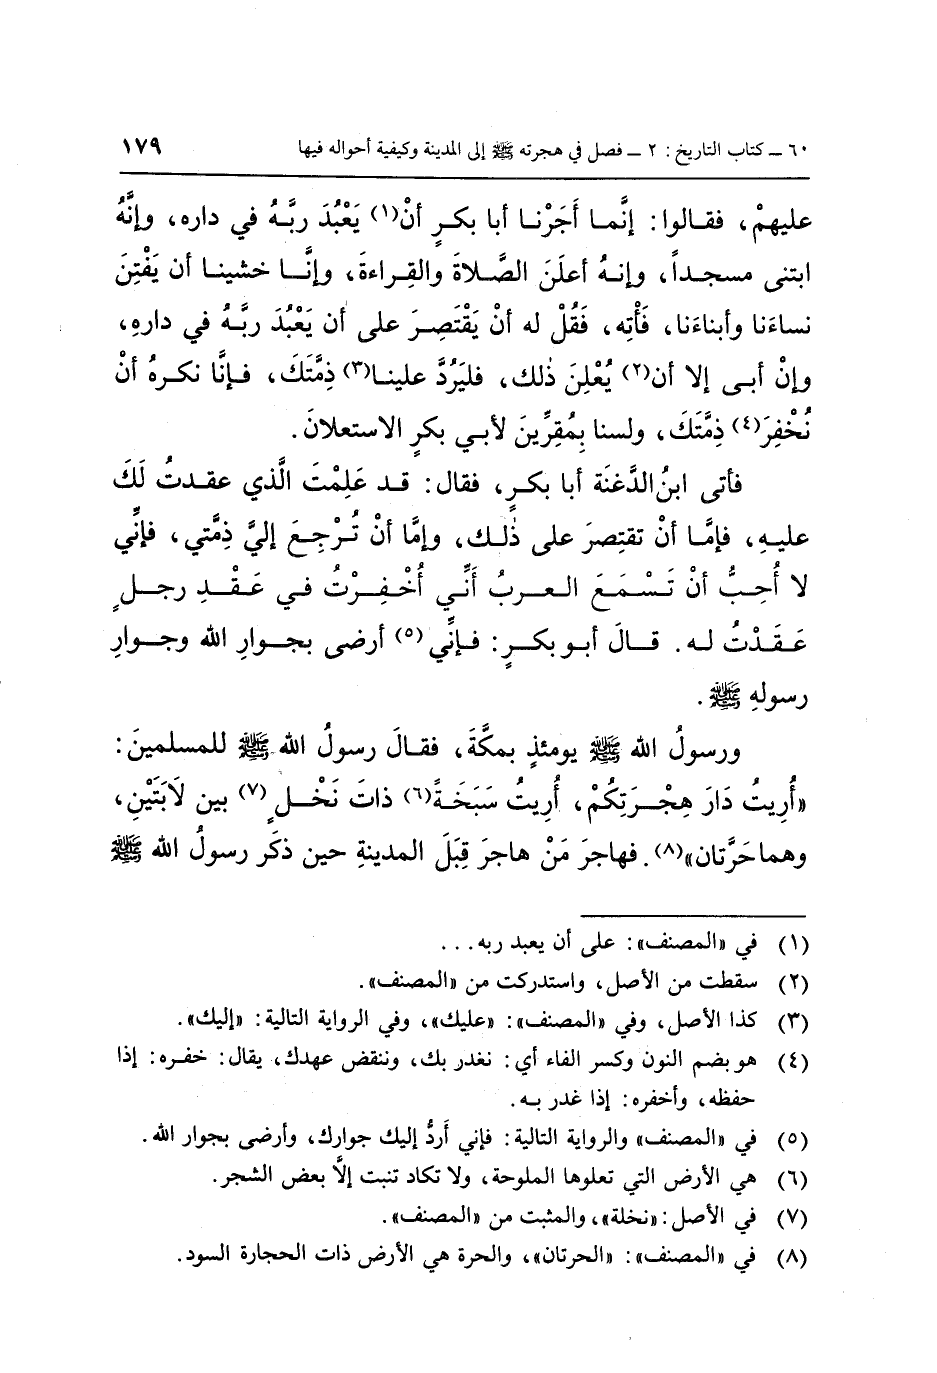 ٦٠ ـ كتاب التاريخ : ٢ ـ فصل في هجرته ﷺ إلى المدينة وكيفية أحواله فيها ١٧٩
عليهمْ، فقالوا: إنَّما أَجَرْنا أبا بكرٍ أنْ(١) يَعْبُدَ ربَّهُ في داره، وإنَّهُ
ابتنى مسجداً، وإنهُ أعلَنَ الصَّلاةَ والقِراءةَ، وإنَّا خشينا أن يَفْتِنَ
نساءَنا وأبناءَنا، فَأْتِه، فَقُلْ له أنْ يَقْتَصِرَ على أن يَعْبُدَ ربَّهُ في دارهِ،
وإنْ أبى إلا أن(٢) يُعْلِنَ ذٰلك، فليَرُدَّ علينا(٣) ذِمَّتَكَ، فإنَّا نكرهُ أنْ
نُخْفِرَ(٤) ذِمَّتَكَ، ولسنا بِمُقِرِّينَ لأبي بكرٍ الاستعلانَ.
فأتى ابنُ الدَّغنَة أبا بكرٍ، فقال: قد عَلِمْتَ الَّذي عقدتُ لَكَ
عليهِ، فإمَّا أنْ تقتصرَ على ذٰلك، وإمَّا أنْ تُرْجِعَ إليَّ ذِمَّتي، فإنِّي
لا أُحِبُّ أنْ تَسْمَعَ العربُ أَنِّي أُخْفِرْتُ في عَقْدِ رجلٍ
عَقَدْتُ له. قالَ أبو بكرٍ: فإنِّي (٥) أرضى بجوارِ الله وجوارِ
رسولهِ ﷺ.
ورسولُ الله ﷺ يومئذٍ بمكَّةَ، فقالَ رسولُ الله ﷺ للمسلمينَ:
«أُرِيتُ دَارَ هِجْرَتِكُمْ، أُرِيتُ سَبَخَةً(٦) ذاتَ نَخْلٍ(٧) بين لَابَتَيْنِ،
وهما حَرَّتان»(٨). فهاجرَ مَنْ هاجرَ قِبَلَ المدينةِ حين ذكَر رسولُ الله ﷺ
(١) في «المصنف»: على أن يعبد ربه...
(٢) سقطت من الأصل، واستدركت من «المصنف».
(٣) كذا الأصل، وفي «المصنف»: «عليك»، وفي الرواية التالية: «إليك».
(٤) هو بضم النون وكسر الفاء أي: نغدر بك، وننقض عهدك، يقال: خفره: إذا
حفظه، وأخفره: إذا غدر به.
(٥) في «المصنف» والرواية التالية: فإني أَردُّ إليك جوارك، وأرضى بجوار الله.
(٦) هي الأرض التي تعلوها الملوحة، ولا تكاد تنبت إلَّا بعض الشجر.
(٧) في الأصل: «نخلة»، والمثبت من «المصنف».
(٨) في «المصنف»: «الحرتان»، والحرة هي الأرض ذات الحجارة السود.